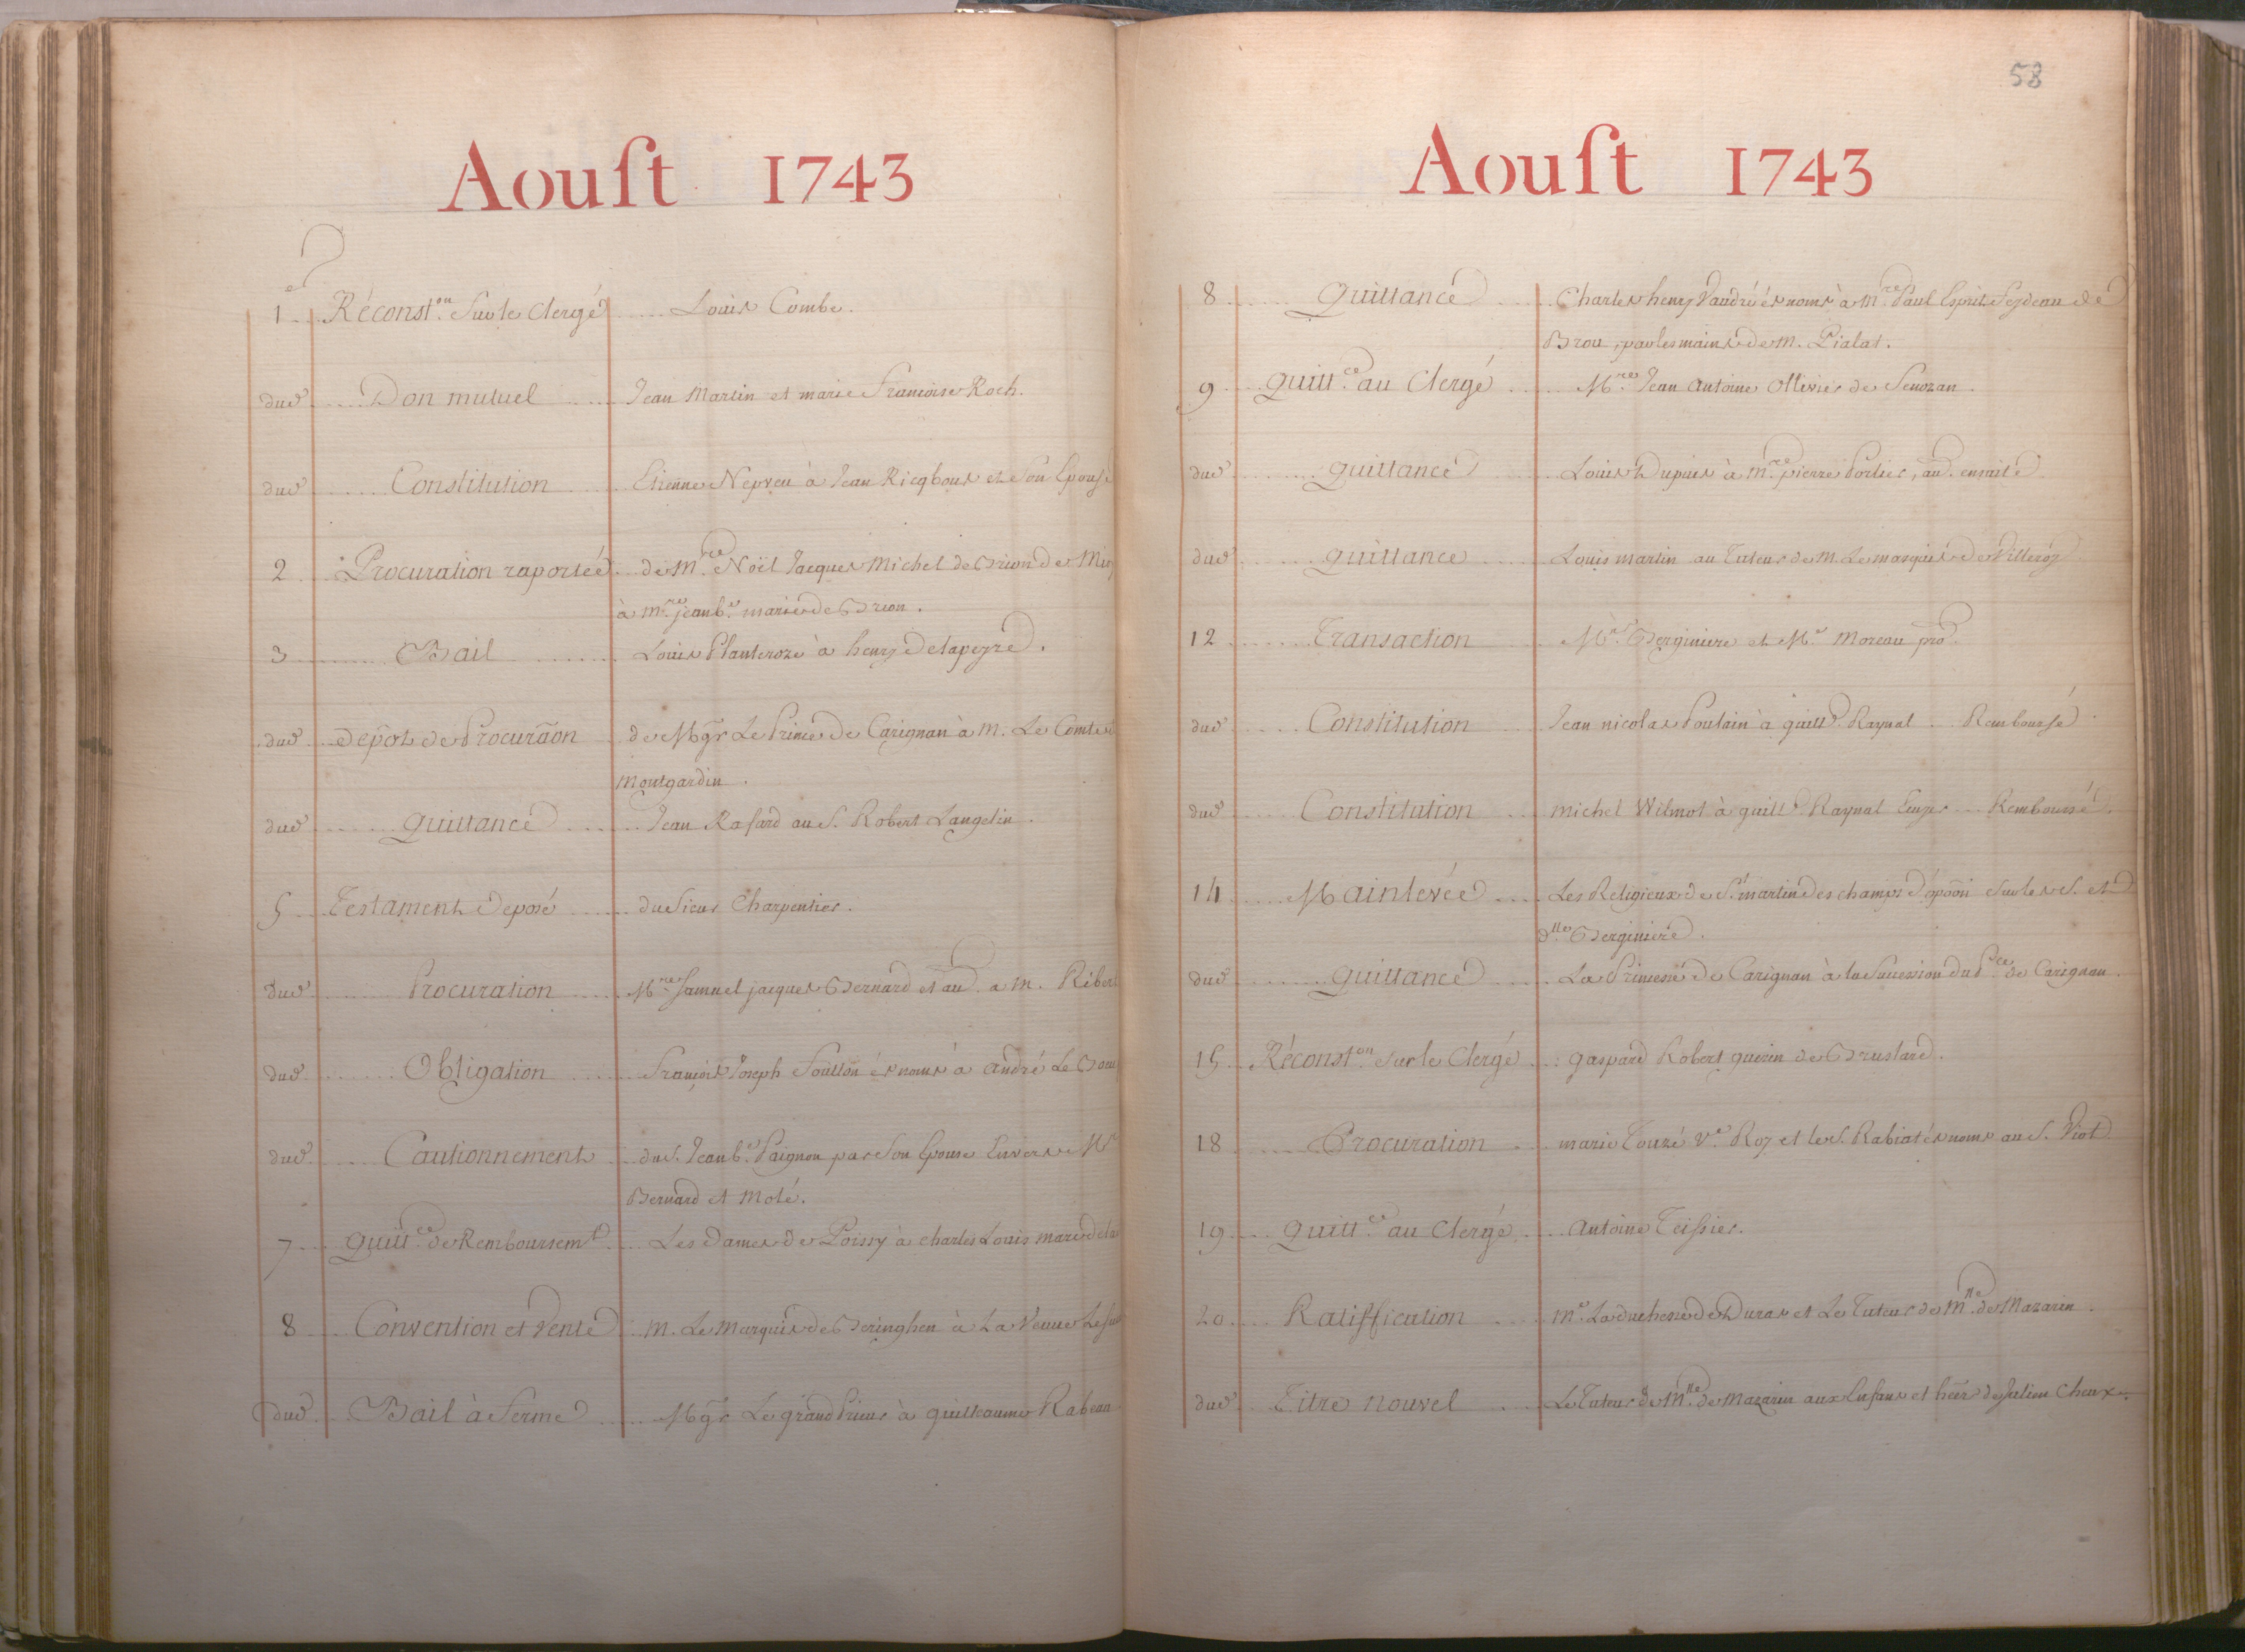 Aouſt 1743
1er Réconston. Sur le Clergé Louis Combe.
dud Don mutuel Jean Martin et marie Françoise Roch.
dud Constitution Etienne Nepveu à Jean Ricqbour et Son Epouse
2 Procuration raportée de Mre. Noël Jacques Michel de Brion de
à Mre. jean be. marie de Brion.
3 Bail Louis Planteroze à henry Delapeyre.
dud depot de Procuraon de Mgr Le Prince de Carignan à M. Le Comte
Montgardin.
dud quittance Jean Rasard au S. Robert Langelin.
5 Testament Deposé du Sieur Charpentier.
dud Procuration Mre Samuel jacques Bernard et au. a M. Ribert
dud Obligation François Joseph Foullon és noms à André Le
dud Cautionnement du S. Jean be. Paignon par Son Epouse Envers
Bernard et Molé.
7 quitt.ce de Remboursemt Les Dames de Poissy à charles Louis
8 Convention et Vente M. Le Marquis de Beringhen à La Veuve
dud Bail à ferme Mgr Le grand Prieur à guilleaume Rabeau
58
Aouſt 1743
8 Quittance Charles henry Vaudré és noms à Mre. Paul Esprit Feydeau de
Brou, par les mains de M. Pialat.
9 Quitt.ce au Clergé Mre Jean Antoine Ollivier de Senozan
dud quittance Louis Dupuis à Mre. pierre Portier, au. ensuite
dud quittance Louis martin au Tuteur de M. Le marquis de Villeroy
12 Transaction Mr. Berginiere et Mr Moreau pro.
dud Constitution Jean nicolas Poulain à guille. Raynal Remboursé
dud Constitution michel Wilmot à guille Raynal Remboursé
14 Mainlevée Les Religieux de S. martin des champs d'opoõn Sur les S. et
dlle Berginiere.
dud quittance La Princesse de Carignan à la Succession du Pce. de Carignan.
15 Réconston. sur le Clergé gaspard Robert guerin de Brustard.
18 Procuration marie Touzé Ve. Roy et le S. Rabiat és noms au S. Viot
19 quitt.ce au Clergé Antoine Teissier.
20 Ratiffication Me. La duchesse de Duras et Le Tuteur de Mlle. de Mazarin.
dud Titre nouvel Le Tuteur de Mlle. de Mazarin aux Enfans et héers de Julien Cheux